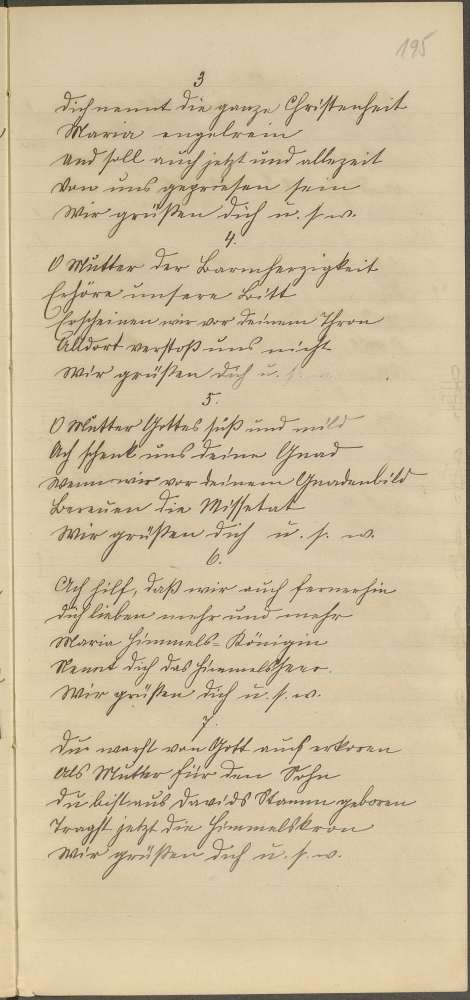 195
3
Dich nennt die ganze Christenheit
Maria engelrein
und soll auch jetzt und allezeit
Von uns gepriesen sein
Wir grüßen dich u. s. w.
4.
O Mutter der Barmherzigkeit
Erhöre unsere Bitt
Erscheinen wir vor Deinem Thron
Alldort verstoß uns nicht
Wir grüßen dich u. s. w.
5.
O Mutter Gottes süß und mild
Ach schenk uns deine Gnad
Wenn wir vor deinem Gnadenbild
Bereuen die Missetat
Wir grüßen dich u. s. w.
6.
Ach hilf, daß wir auch fernerhin
dich lieben mehr und mehr
Maria Himmels-Königin
Nennt dich das Himmelsheer.
Wir grüßen dich u. s. w.
7.
Du warst von Gott auch erkoren
Als Mutter für den Sohn
Du bist aus Davids Stamm geboren
Tragst jetzt die Himmelskron
Wir grüßen dich u. s. w.